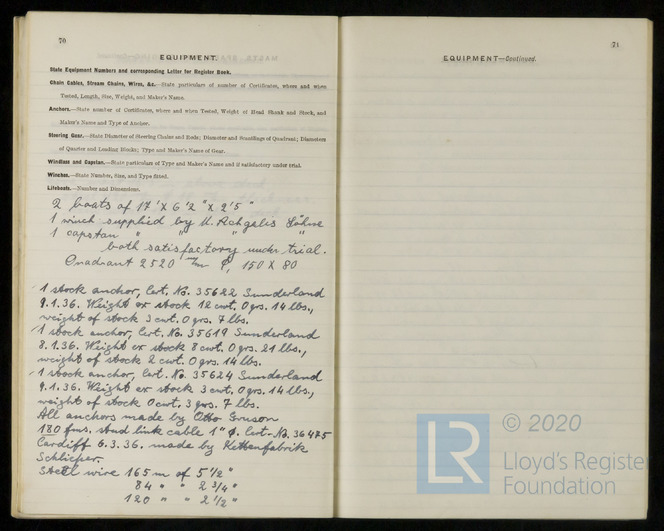 70
EQUIPMENT.
State Equipment Numbers and corresponding Letter for Register Book.
Chain Cables, Stream Chains, Wires, &c.—State particulars of number of Certificates, where and when
Tested, Length, Size, Weight, and Maker's Name.
Anchors.—State number of Certificates, where and when Tested, Weight of Head Shank and Stock, and
Maker's Name and Type of Anchor.
Steering Gear.—State Diameter of Steering Chains and Rods; Diameter and Scantlings of Quadrant; Diameters
of Quarter and Leading Blocks; Type and Maker's Name of Gear.
Windlass and Capstan.—State particulars of Type and Maker's Name and if satisfactory under trial.
Winches.—State Number, Size, and Type fitted.
Lifeboats.—Number and Dimensions.
2 boats of 17' X 6'2" X 2'5"
1 winch supplied by U. Achgelis Söhne
1 capstan " " "
both satisfactory under trial.
Quadrant 2520 150 X 80
1 stock anchor, Cert. No. 35622 Sunderland
9.1.36. Weight ex stock 12 cwt. 0 qrs. 14 lbs.,
weight of stock 3 cwt. 0 qrs. 7 lbs.
1 stock anchor, Cert. No. 35619 Sunderland
8.1.36. Weight ex stock 8 cwt. 0 qrs. 21 lbs.,
weight of stock 2 cwt. 0 qrs. 14 lbs.
1 stock anchor, Cert. No. 35624 Sunderland
9.1.36. Weight ex stock 3 cwt. 0 qrs. 14 lbs.,
weight of stock 0 cwt. 3 qrs. 7 lbs.
All anchors made by Otto Gruson
180 fms. stud link cable 1" φ. Cert. No. 36475
Cardiff 6.3.36. made by Kettenfabrik
Schlieper.
Steel wire 165 m of 5 1/2"
84 " " 2 3/4"
120 " " 2 1/2"
71
EQUIPMENT—Continued.
LR
© 2020
Lloyd's Register
Foundation